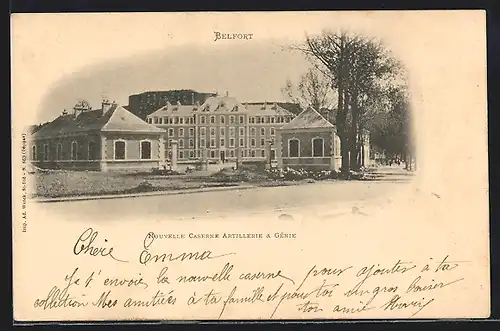 BELFORT
Imp. Ad. Weick, St-Dié
NOUVELLE CASERNE ARTILLERIE & GÉNIE
Chère Emma
Je t'envoie la nouvelle caserne pour ajouter à ta
collection Mes amitiés à ta famille et pour toi un gros baiser
ton amie